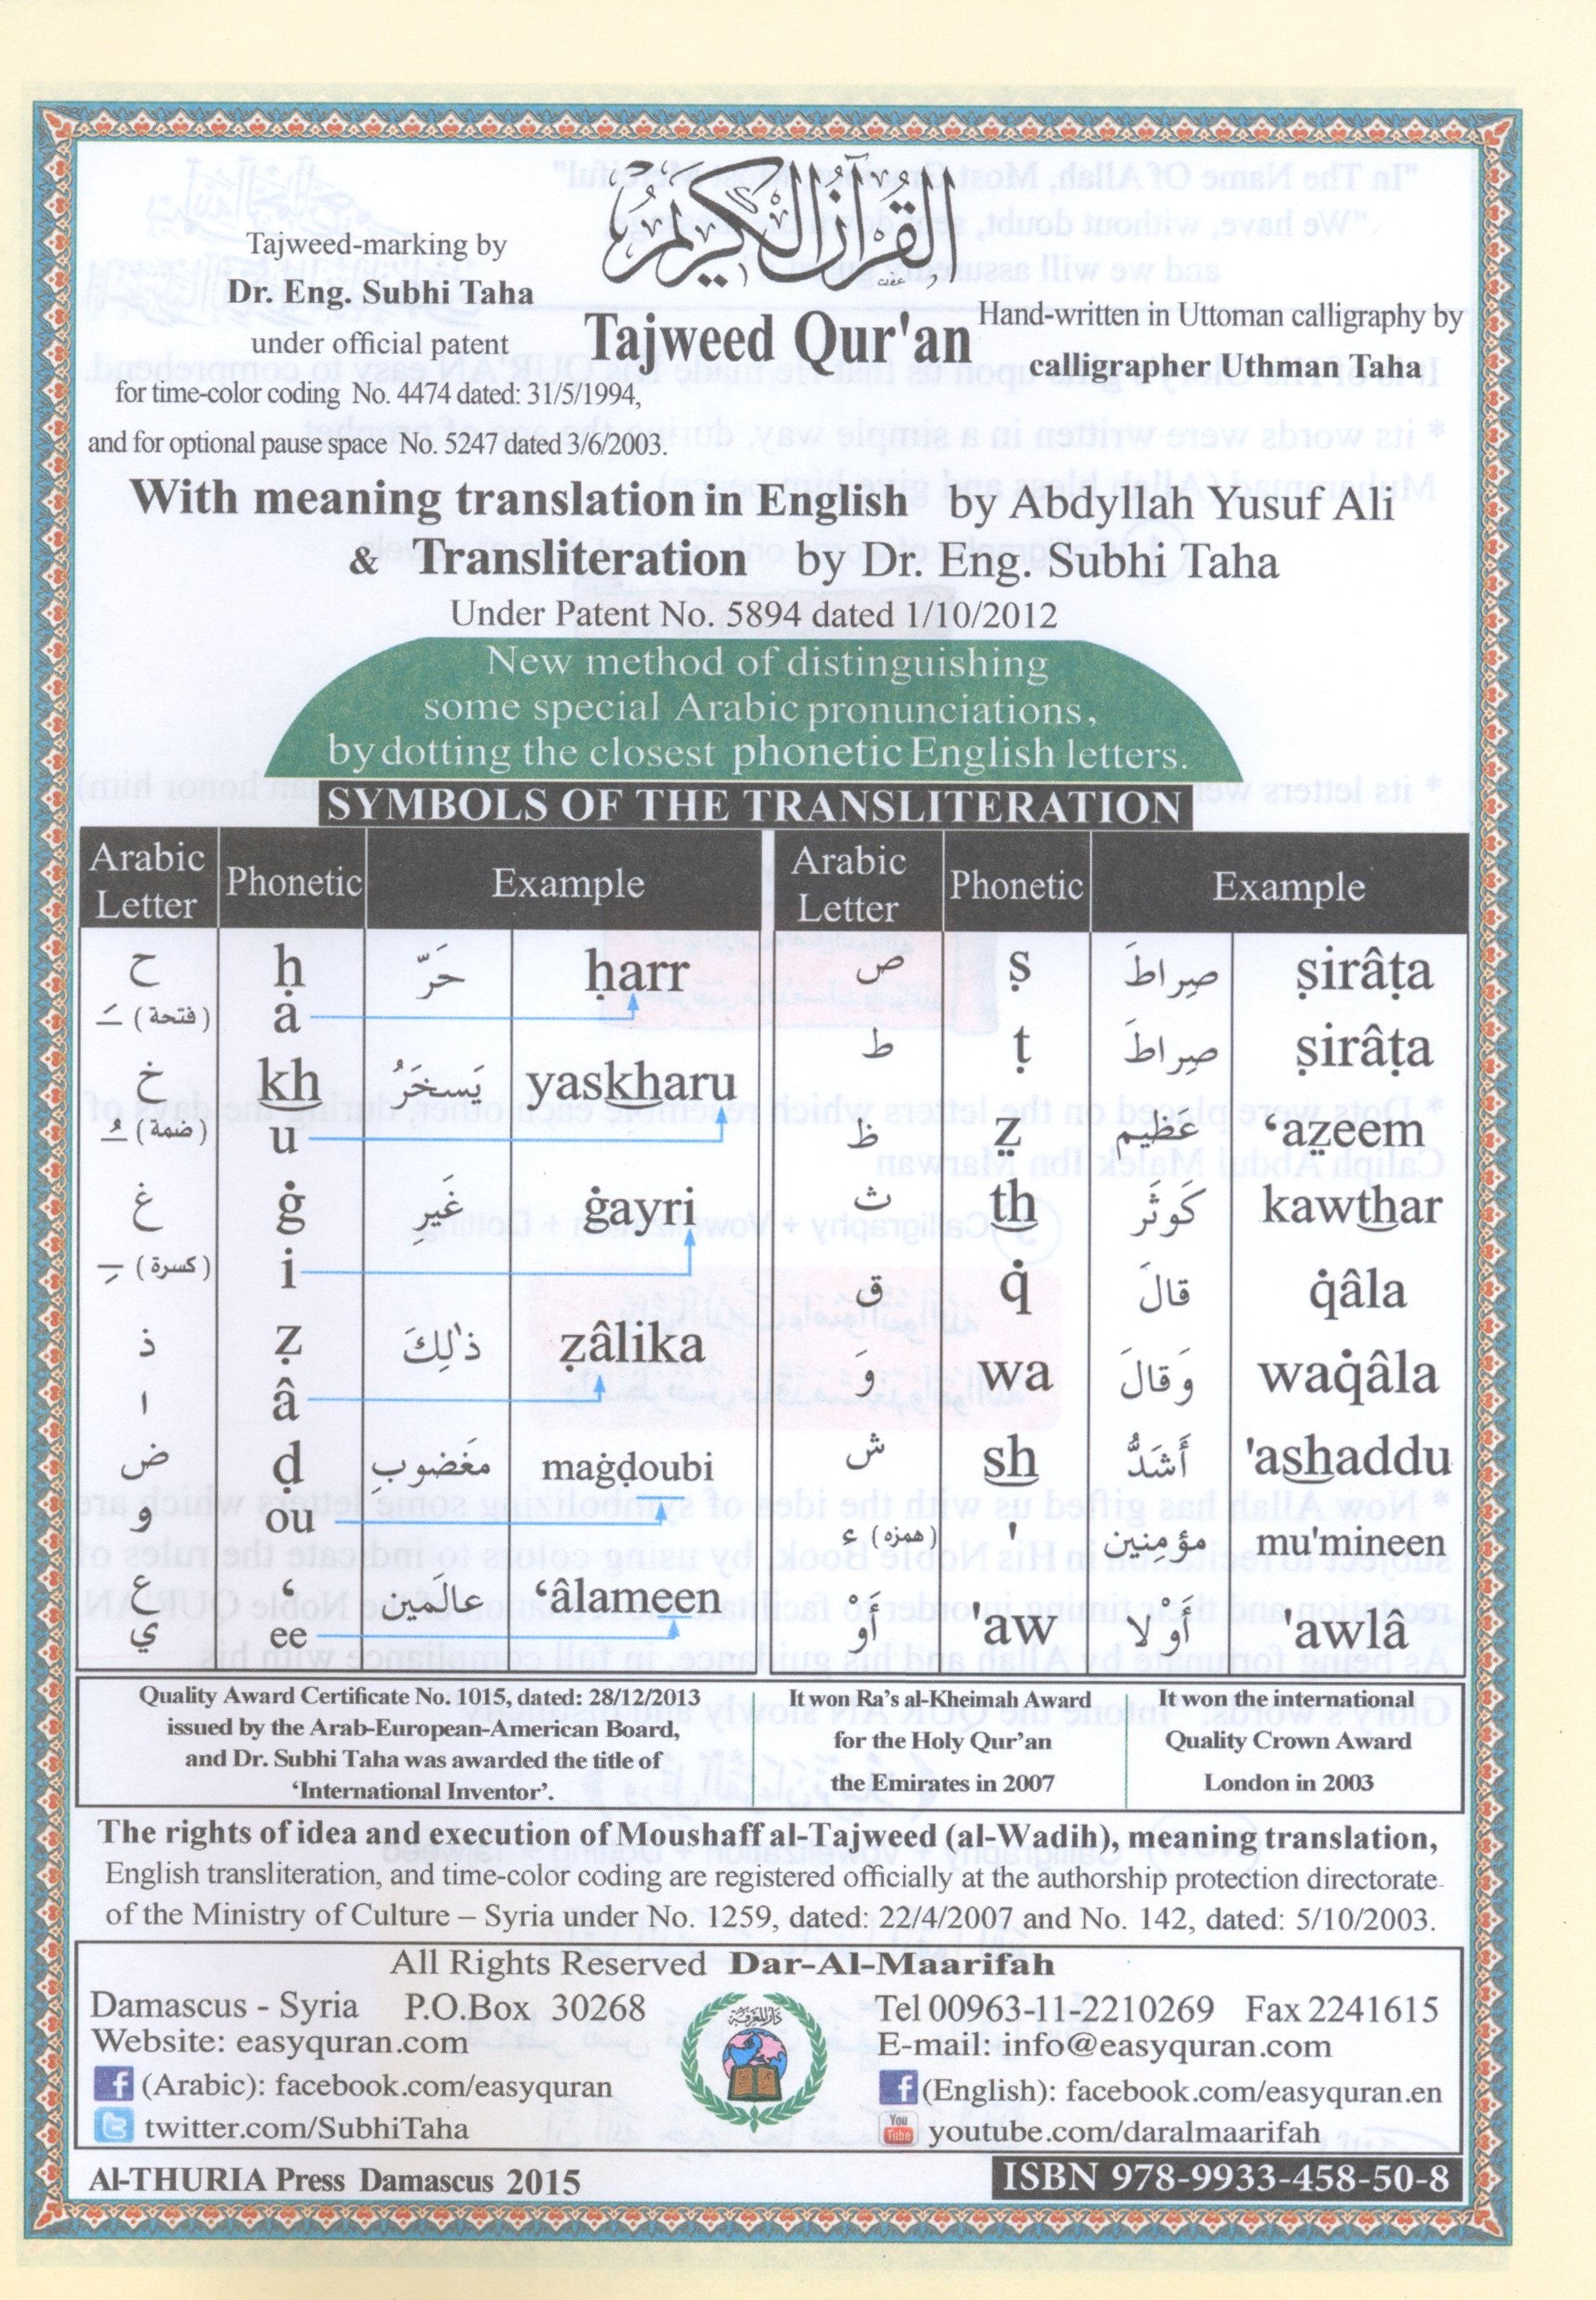 القرآن الكريم
Tajweed Qur'an
Tajweed-marking by
Dr. Eng. Subhi Taha
under official patent
for time-color coding No. 4474 dated: 31/5/1994,
and for optional pause space No. 5247 dated 3/6/2003.
Hand-written in Uttoman calligraphy by
calligrapher Uthman Taha
With meaning translation in English by Abdyllah Yusuf Ali
& Transliteration by Dr. Eng. Subhi Taha
Under Patent No. 5894 dated 1/10/2012
New method of distinguishing
some special Arabic pronunciations,
by dotting the closest phonetic English letters.
SYMBOLS OF THE TRANSLITERATION
Arabic Letter Phonetic Example
ح ḥ حَرّ ḥarr
(فتحة) ـَ a
خ kh يَسخَرُ yaskharu
(ضمة) ـُ u
غ ġ غَيرِ ġayri
(كسرة) ـِ i
ذ ẓ ذٰلِكَ ẓâlika
ا â
ض ḍ مَغضوبِ maġḍoubi
و ou
ع ‘ عالَمين ‘âlameen
ي ee
Arabic Letter Phonetic Example
ص ṣ صِراطَ ṣirâṭa
ط ṭ صِراطَ ṣirâṭa
ظ z̤ عَظيم ‘az̤eem
ث th كَوثَر kawthar
ق q̇ قالَ q̇âla
وَ wa وَقالَ waq̇âla
ش sh أَشَدُّ 'ashaddu
ء (همزه) ' مؤمِنين mu'mineen
أَوْ 'aw أَوْلا 'awlâ
Quality Award Certificate No. 1015, dated: 28/12/2013
issued by the Arab-European-American Board,
and Dr. Subhi Taha was awarded the title of
‘International Inventor’.
It won Ra’s al-Kheimah Award
for the Holy Qur’an
the Emirates in 2007
It won the international
Quality Crown Award
London in 2003
The rights of idea and execution of Moushaff al-Tajweed (al-Wadih), meaning translation,
English transliteration, and time-color coding are registered officially at the authorship protection directorate
of the Ministry of Culture – Syria under No. 1259, dated: 22/4/2007 and No. 142, dated: 5/10/2003.
All Rights Reserved Dar-Al-Maarifah
Damascus - Syria P.O.Box 30268
Website: easyquran.com
f (Arabic): facebook.com/easyquran
twitter.com/SubhiTaha
دار المعرفة
Tel 00963-11-2210269 Fax 2241615
E-mail: info@easyquran.com
f (English): facebook.com/easyquran.en
You Tube youtube.com/daralmaarifah
Al-THURIA Press Damascus 2015
ISBN 978-9933-458-50-8